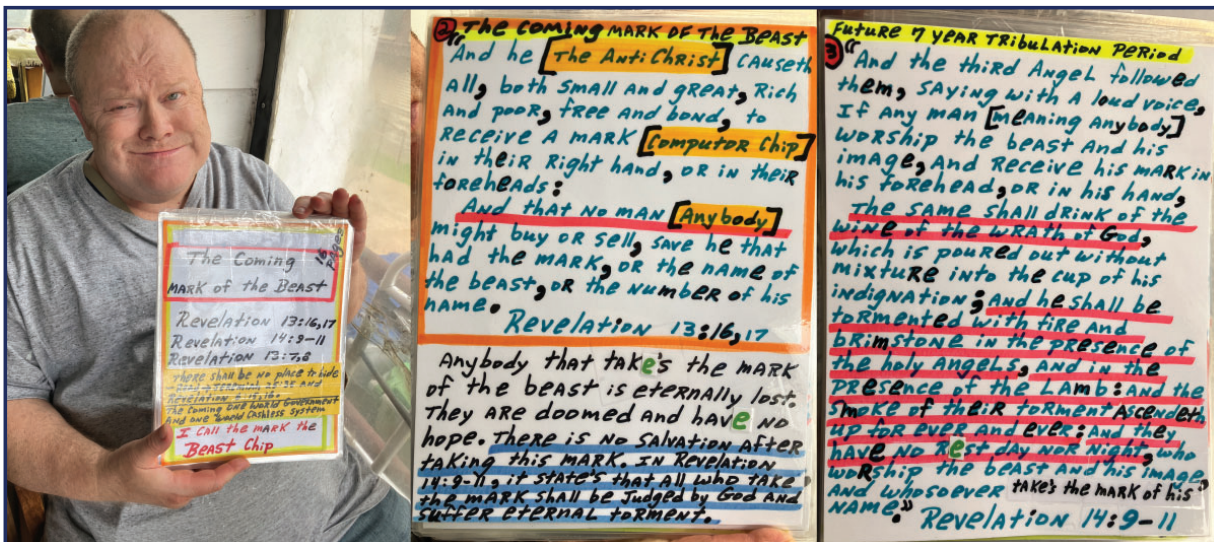 The Coming
16 pages
mark of the Beast
Revelation 13:16,17
Revelation 14:9-11
Revelation 13:7,8
There shall be no place to hide
25:35 and
Revelation
The Coming one World Government
And one World Cashless system
I call the mark the
Beast Chip
② The Coming mark of the Beast
“And he [The AntiChrist] causeth
All, both small and great, Rich
And poor, free and bond, to
receive a mark [Computor Chip]
in their Right hand, or in their
foreheads:
And that no man [Anybody]
might buy or sell, save he that
had the mark, or the name of
the beast, or the number of his
name.
Revelation 13:16,17
Anybody that take's the mark
of the beast is eternally lost.
They are doomed and have no
hope. There is no salvation after
taking this mark. In Revelation
14:9-11, it state's that all who take
the mark shall be judged by God and
suffer eternal torment.
Future 7 year Tribulation Period
③ “And the third Angel followed
them, saying with a loud voice,
If any man [meaning Anybody]
worship the beast and his
image, and receive his mark in
his forehead, or in his hand,
The same shall drink of the
wine of the wrath of God,
which is poured out without
mixture into the cup of his
indignation; and he shall be
tormented with fire and
brimstone in the presence of
the holy Angels, and in the
presence of the Lamb: and the
smoke of their torment ascendeth
up for ever and ever: and they
have no rest day nor night, who
worship the beast and his image,
and whosoever take's the mark of his
name.” Revelation 14:9-11